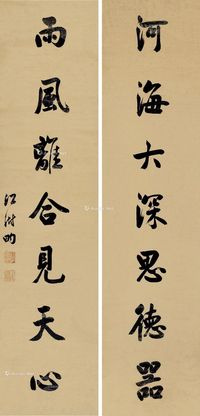 河海大深思德器
雨風離合見天心